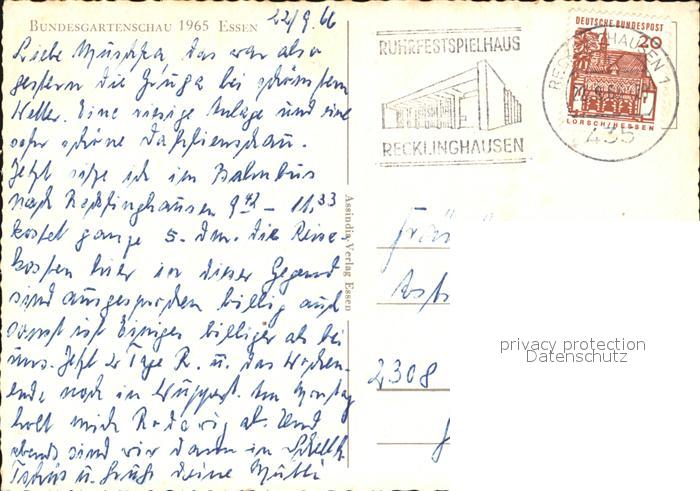 BUNDESGARTENSCHAU 1965 ESSEN
22/9.66
Liebe Muschka Das war also
gestern die Gruga bei schönstem
Wetter. Eine riesige Anlage und eine
sehr schöne Dahlienschau.
Jetzt sitze ich im Bahnbus
nach Recklinghausen 9 42 – 11.33
kostet ganze 5. Dm. die Reise
kosten hier in dieser Gegend
sind ausgesprochen billig auch
sonst ist Einiges billiger als bei
uns. Jetzt 2 Tage R. u. das Wochen-
ende noch in Wuppert. Am Montag
holt mich ab. Und
abends sind wir dann in
Tschüs u. Gruß deine Mutti
Assindia Verlag Essen
RUHRFESTSPIELHAUS
RECKLINGHAUSEN
DEUTSCHE BUNDESPOST
20
LORSCH/HESSEN
RECKLINGHAUSEN 1
435
2308
privacy protection
Datenschutz